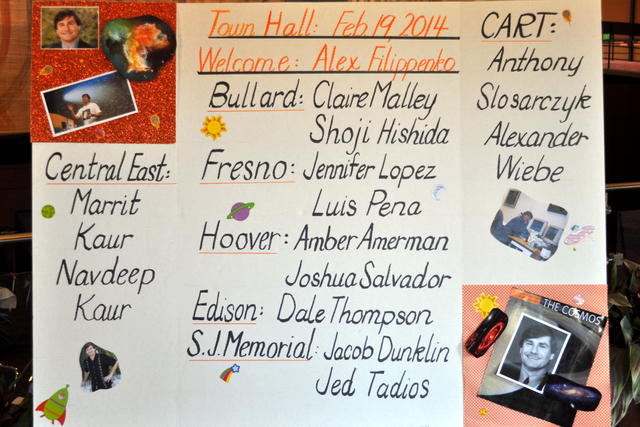 Town Hall: Feb 19, 2014
Welcome: Alex Filippenko
Central East:
Marrit
Kaur
Navdeep
Kaur
Bullard: Claire Malley
Shoji Hishida
Fresno: Jennifer Lopez
Luis Pena
Hoover: Amber Amerman
Joshua Salvador
Edison: Dale Thompson
S.J. Memorial: Jacob Dunklin
Jed Tadios
CART:
Anthony
Slosarczyk
Alexander
Wiebe
THE COSMOS